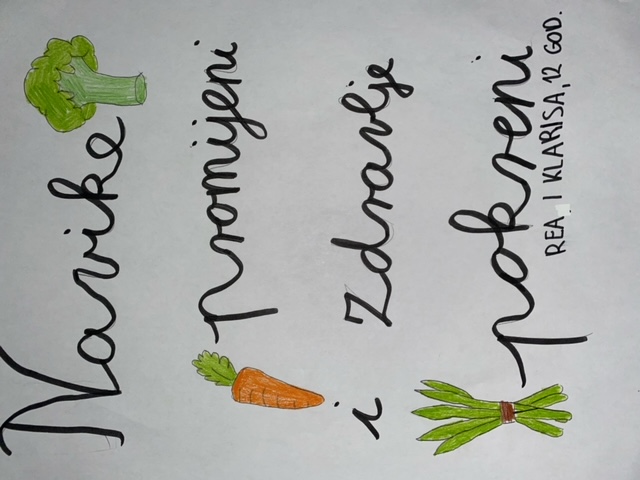 Navike
promijeni
i zdravlje
pokreni
REA I KLARISA, 12 GOD.